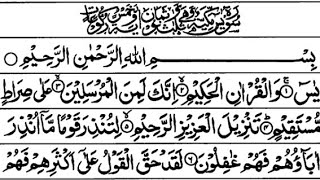 بِسْمِ اللّٰهِ الرَّحْمٰنِ الرَّحِيْمِ
يٰسٓ ۚ﴿۱﴾ وَالْقُرْاٰنِ الْحَكِيْمِ ۙ﴿۲﴾ اِنَّكَ لَمِنَ الْمُرْسَلِيْنَ ۙ﴿۳﴾ عَلٰى صِرَاطٍ
مُّسْتَقِيْمٍ ؕ﴿۴﴾ تَنْزِيْلَ الْعَزِيْزِ الرَّحِيْمِ ۙ﴿۵﴾ لِتُنْذِرَ قَوْمًا مَّاۤ اُنْذِرَ
اٰبَآؤُهُمْ فَهُمْ غٰفِلُوْنَ ﴿۶﴾ لَقَدْ حَقَّ الْقَوْلُ عَلٰۤى اَكْثَرِهِمْ فَهُمْ